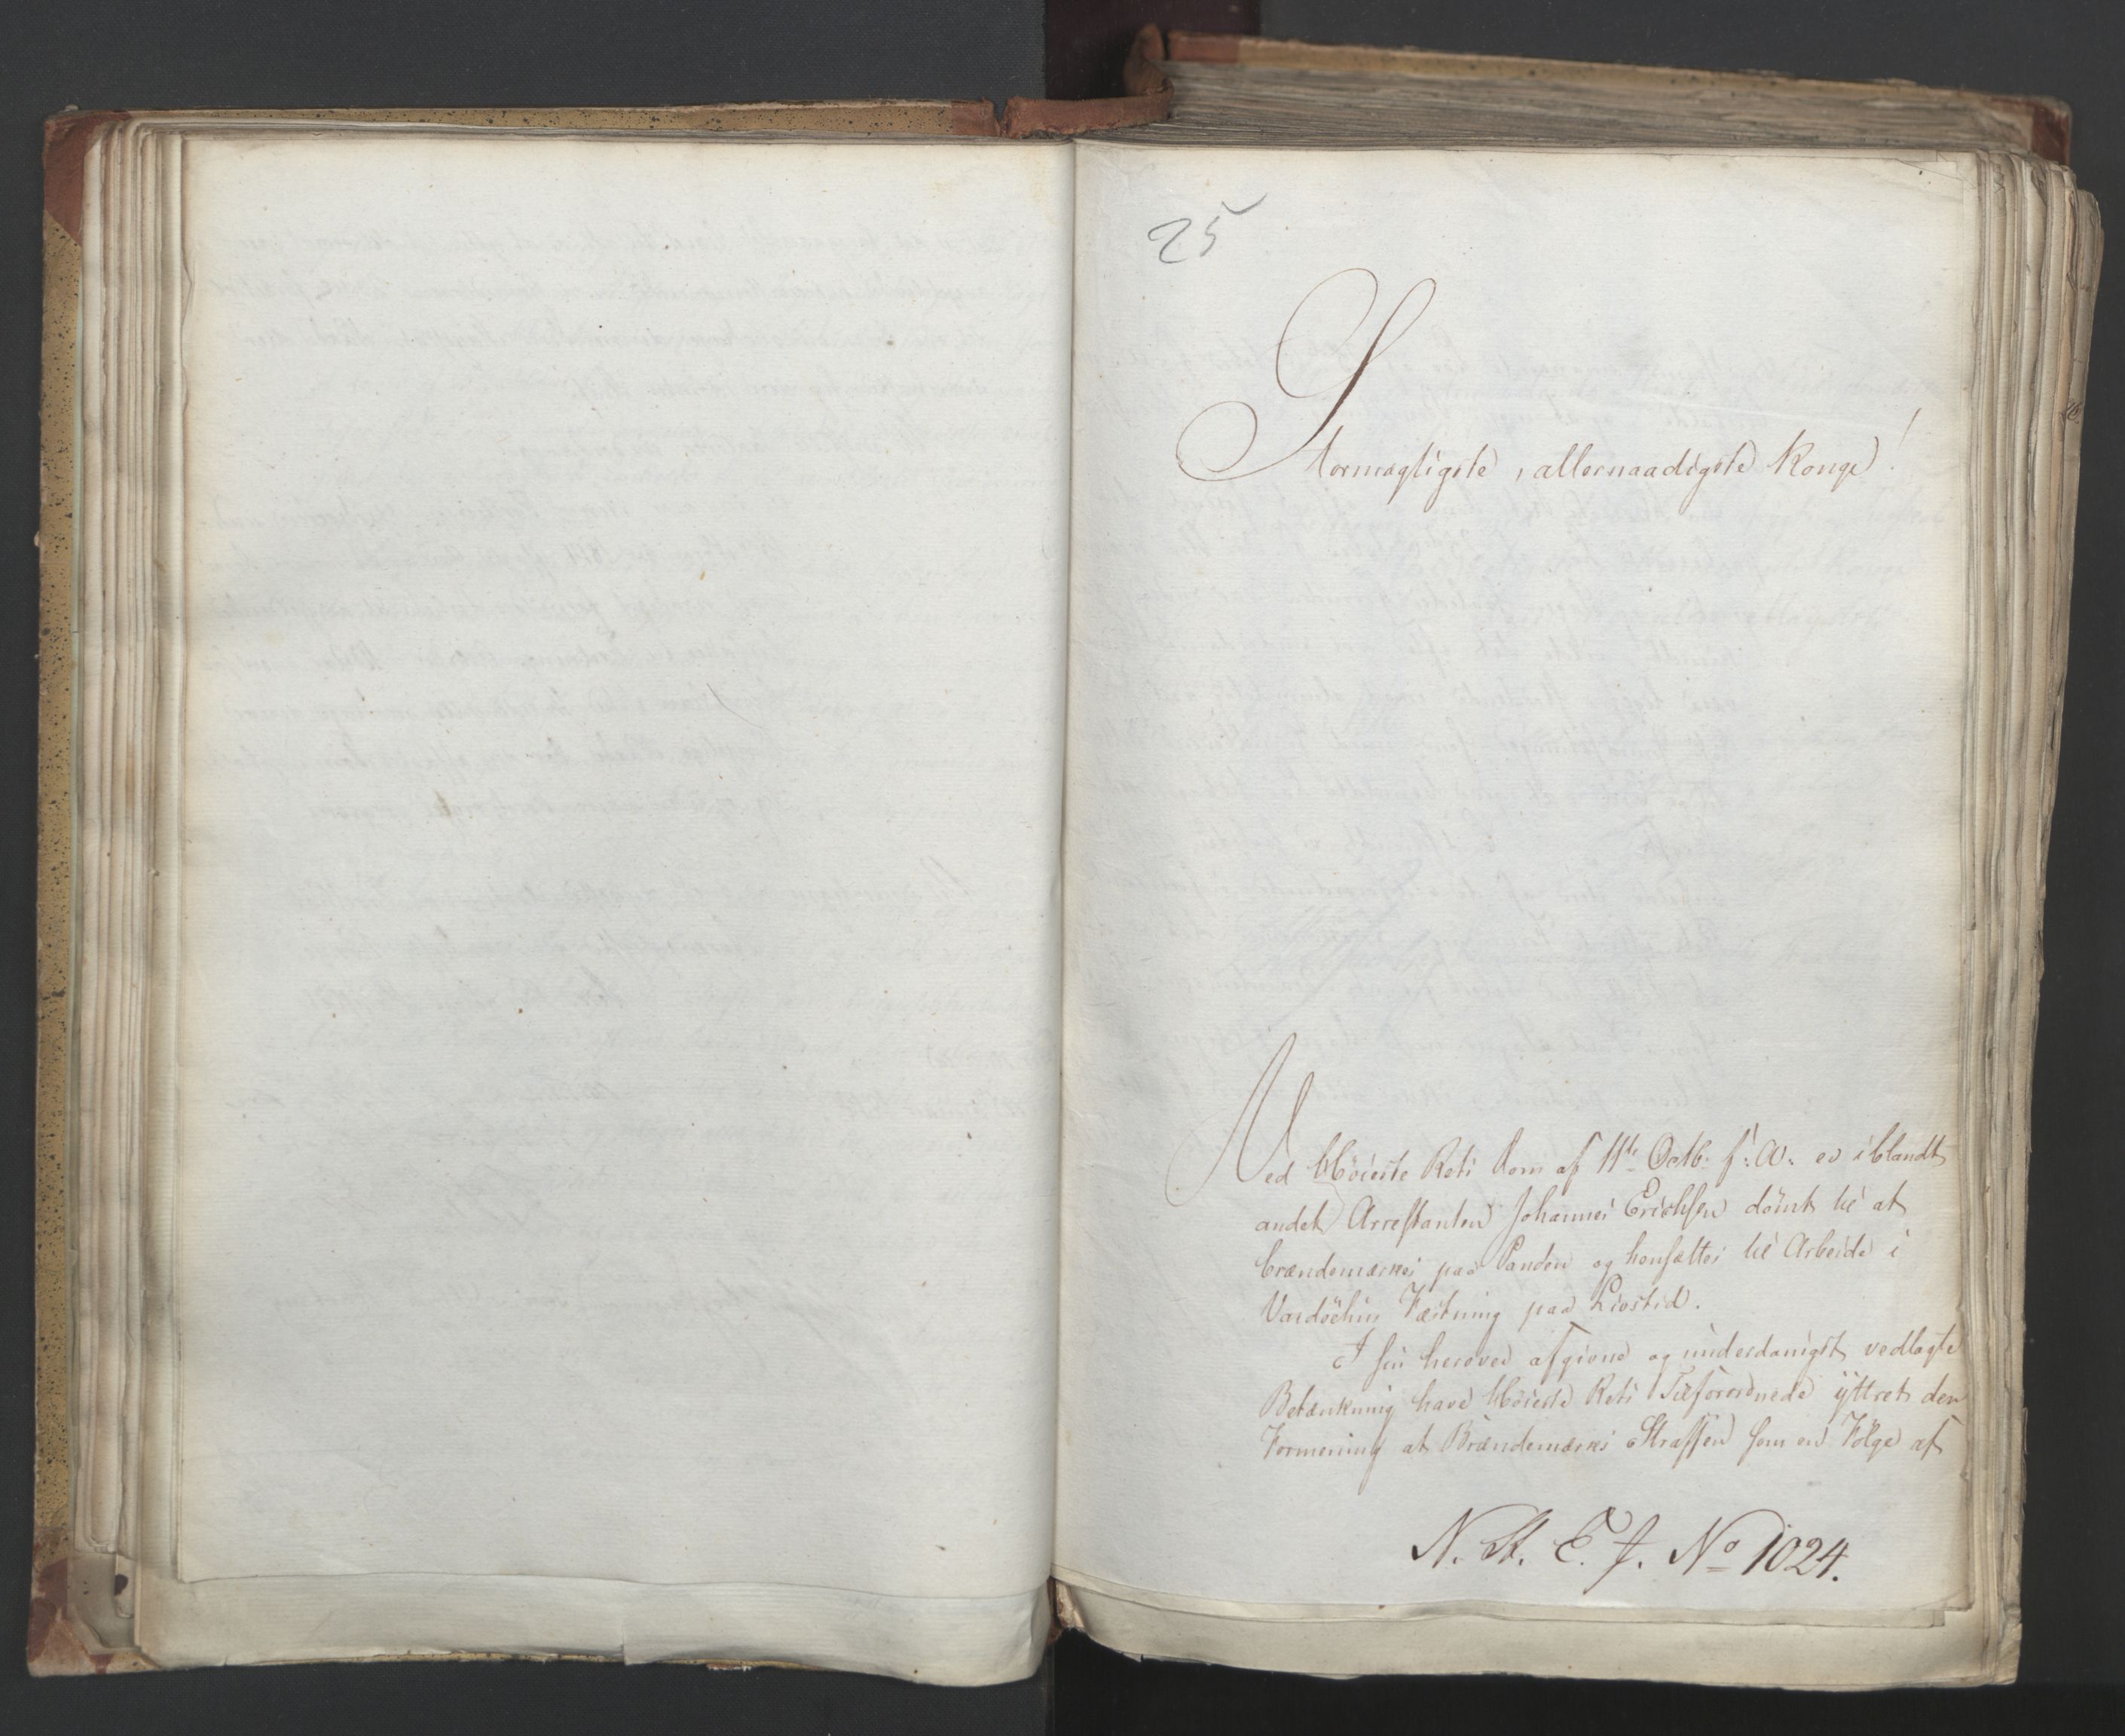 25
Stormægtigste, allernaadigste Konge!
Ved Høieste Rets Dom af 11te Octb: f: A: er iblandt
andet Arrestanten Johannes Erichsen dømt til at
brændemærkes paa Panden og hensættes til Arbeide i
Vardøehus Fæstning paa Livstid.
I sin herover afgivne og underdanigst vedlagte
Betænkning have Høieste Rets Tilforordnede ÿttret den
Formening at Brændemærks Straffen som en Følge af
N. St. E. J. No 1024.